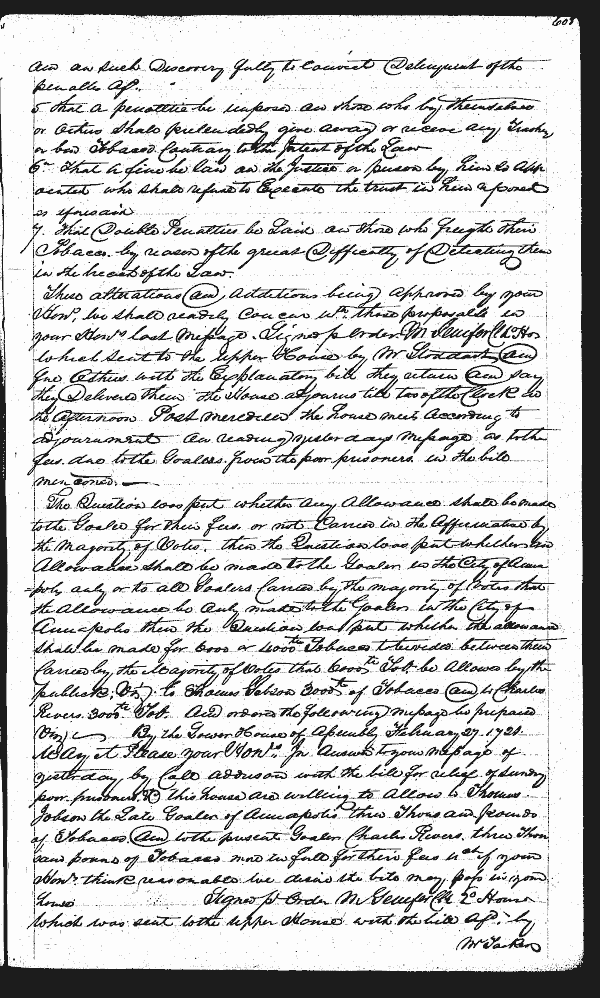 608
and on such Discovery fully to Convict Delinquent of the
penaltie afd.
5 that a penaltie be imposed on those who by themselves
or Others Shall pretendedly give away or receive any Trashy
or bad Tobacco Contrary to the Intent of the Law
6th That a fine be laid on the Justice or person by him so App
ointed who shall refuse to Execute the trust in him reposed
as aforesaid
7. That Double Penalties be Laid on those who freight their
Tobacco by reason of the great Difficulty of Detecting them
in the breach of the Law.
These alterations and Additions being Approved by your
Honrs. we shall readily Concur wth. those proposalls in
your Honrs last Message. Signed p Order M Jenifer Cl. Ho
which sent to the upper House by Mr Stoddart and
five Others with the Explanatory bill they return and say
they Delivered them the House adjourns till two of the Clock in
the afternoon Post meredien the house meet According to
adjournment On reading yesterdays Message as to the
fees due to the Goalers from the poor prisoners in the bill
mentioned.
The Question was put whether any Allowance shall be made
to the Goaler for their fees or not Carried in the Affirmative by
the Majority of Votes. then the Question was put whether an
Allowance shall be made to the Goaler in the City of Anna
=polis only or to all Goalers Carried by the majority of Votes that
the Allowance be Only made to the Goaler in the City of
Annapolis then the Question was put whether the allowance
shall be made for 6000 or 4000lb Tobacco to be divided between them
Carried by the Majority of Votes that 6000lb Tob. be Allowed by the
publick Vizt) to Thomas Jobson 3000lb of Tobacco and to Charles
Rivers 3000lb Tob. And ordered the following message be prepared
Vizt) By the Lower House of Assembly February 27. 1721
May it Please your Honrs. In Answer to your message of
yesterday, by Coll Addison with the bill for relief of sundry
poor prisoners &c this house are willing to Allow to Thomas
Jobson the Late Goaler of Annapolis three Thousand pounds
of Tobacco and to the present Goaler Charles Rivers three Thou
sand pound of Tobacco more in full for their fees wch if your
Honrs think reasonable we desire the bill may pass in your
house Signed p Order M. Jenifer Cl Lo House
Which was sent to the upper House with the bill afd. by
Mr Tasker